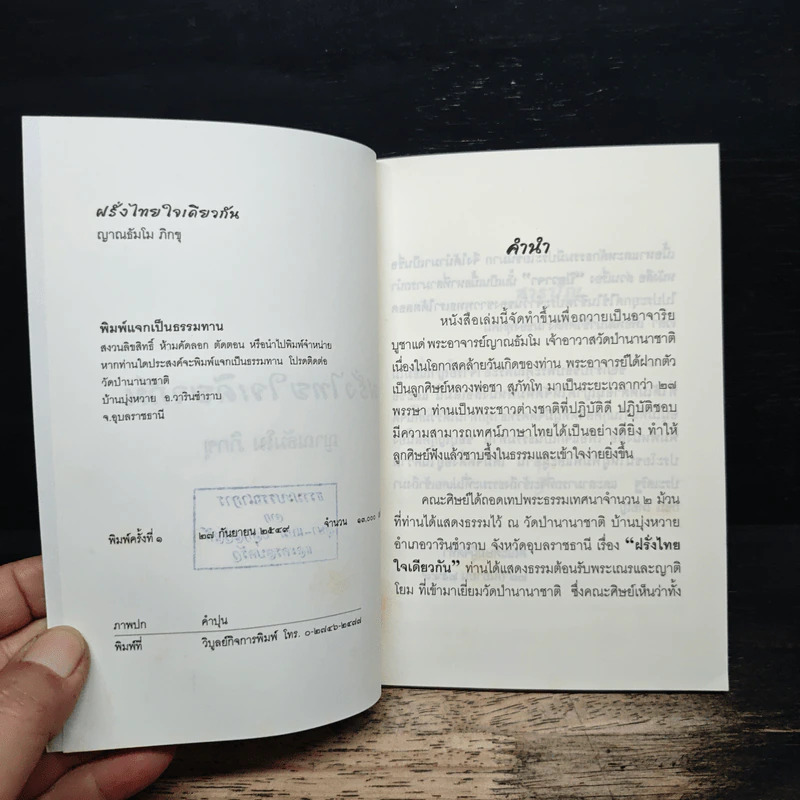 ฝรั่งไทยใจเดียวกัน
ญาณธัมโม ภิกขุ
พิมพ์แจกเป็นธรรมทาน
สงวนลิขสิทธิ์ ห้ามคัดลอก ตัดตอน หรือนำไปพิมพ์จำหน่าย
หากท่านใดประสงค์จะพิมพ์แจกเป็นธรรมทาน โปรดติดต่อ
วัดป่านานาชาติ
บ้านบุ่งหวาย อ.วารินชำราบ
จ.อุบลราชธานี
พิมพ์ครั้งที่ ๑ ๒๗ กันยายน ๒๕๔๙ จำนวน ๑๓,๐๐๐
ภาพปก คำปุน
พิมพ์ที่ วิบูลย์กิจการพิมพ์ โทร. ๐-๒๗๔๖-๒๔๗๗
คำนำ
หนังสือเล่มนี้จัดทำขึ้นเพื่อถวายเป็นอาจาริย
บูชาแด่ พระอาจารย์ญาณธัมโม เจ้าอาวาสวัดป่านานาชาติ
เนื่องในโอกาสคล้ายวันเกิดของท่าน พระอาจารย์ได้ฝากตัว
เป็นลูกศิษย์หลวงพ่อชา สุภัทโท มาเป็นระยะเวลากว่า ๒๗
พรรษา ท่านเป็นพระชาวต่างชาติที่ปฏิบัติดี ปฏิบัติชอบ
มีความสามารถเทศน์ภาษาไทยได้เป็นอย่างดียิ่ง ทำให้
ลูกศิษย์ฟังแล้วซาบซึ้งในธรรมและเข้าใจง่ายยิ่งขึ้น
คณะศิษย์ได้ถอดเทปพระธรรมเทศนาจำนวน ๒ ม้วน
ที่ท่านได้แสดงธรรมไว้ ณ วัดป่านานาชาติ บ้านบุ่งหวาย
อำเภอวารินชำราบ จังหวัดอุบลราชธานี เรื่อง “ฝรั่งไทย
ใจเดียวกัน” ท่านได้แสดงธรรมต้อนรับพระเณรและญาติ
โยม ที่เข้ามาเยี่ยมวัดป่านานาชาติ ซึ่งคณะศิษย์เห็นว่าทั้ง